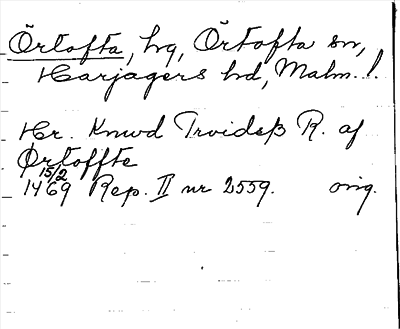 Örtofta, hg, Örtofta sn,
Harjagers hd, Malm. l.
Hr. Knwd Troidesz R. af
Ørtoffte
15/2
1469 Rep. II nr 2559. orig.